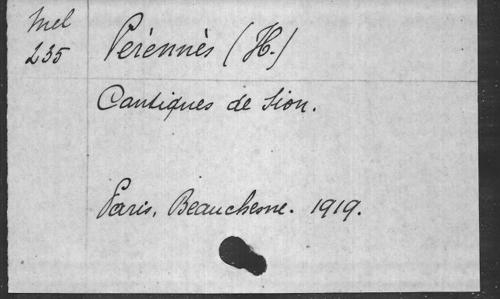 Mel
235
Pérennès (H.)
Cantiques de Sion.
Paris, Beauchesne. 1919.